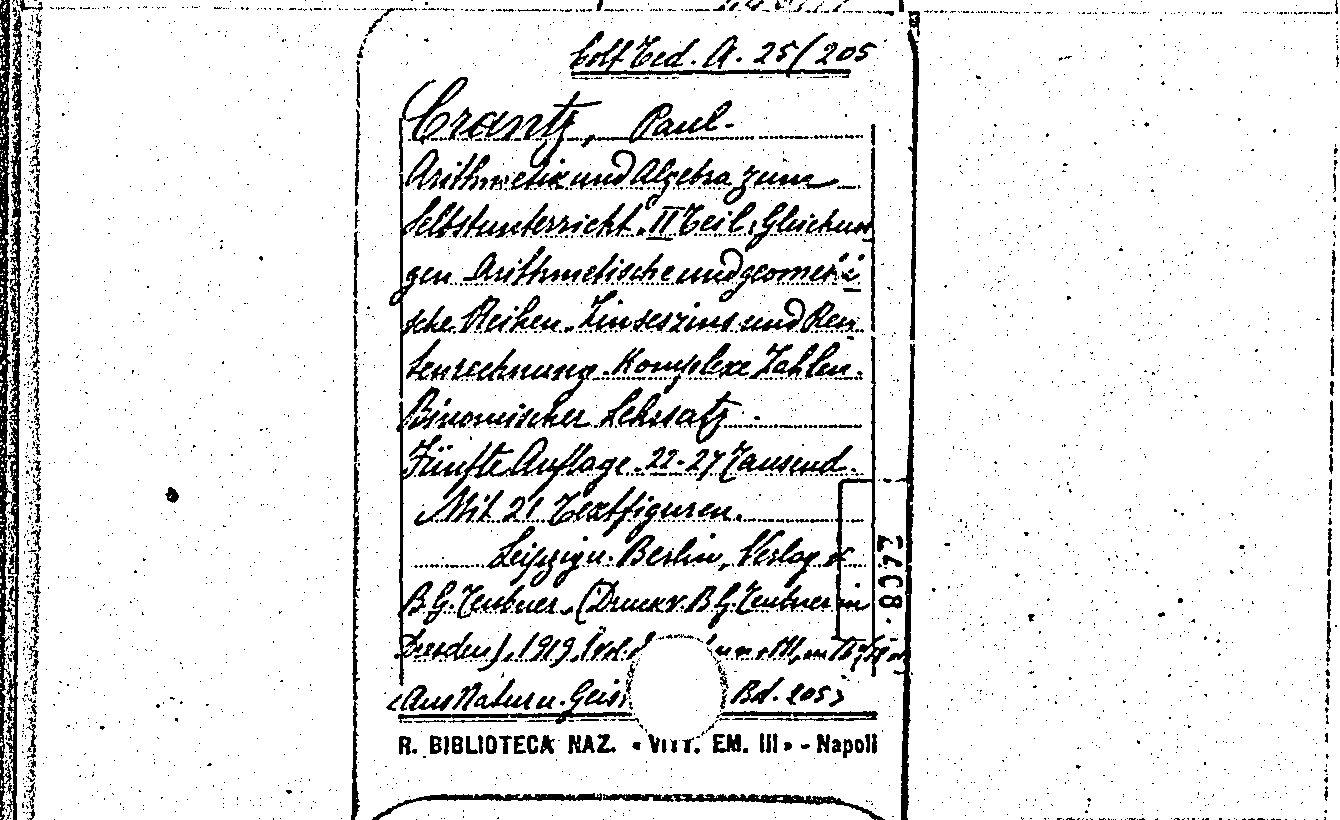 Coll. Ted. A. 25/205
Crantz, Paul.
Arithmetik und Algebra zum
Selbstunterricht. II Teil: Gleichun
gen Arithmetische und geometri
sche Reihen. Zinseszins und Ren
tenrechnung. Komplexe Zahlen.
Binomischer Lehrsatz.
Fünfte Auflage. 22-27 Tausend.
Mit 21 Textfiguren.
Leipzig u. Berlin, Verlag v
B.G. Teubner. (Druck v. B.G. Teubner in
Dresden), 1919,
<Aus Natur u. Geis Bd. 205>
R. BIBLIOTECA NAZ. « VITT. EM. III » - Napoli